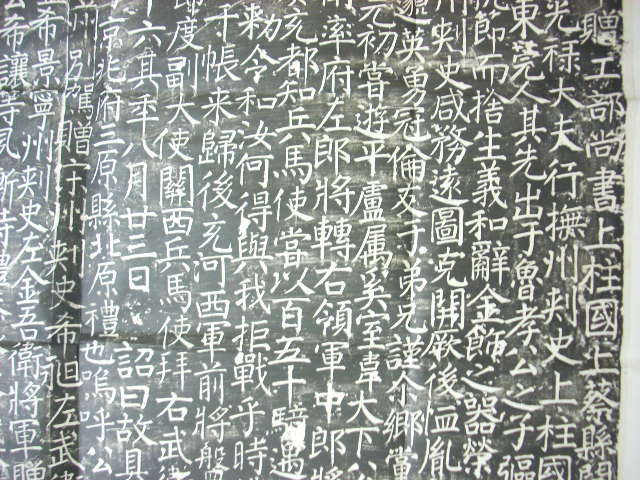 贈工部尚書上柱國上蔡縣開
光祿大夫行撫州刺史上柱國
東莞人其先出于魯孝公之子彄
節而捨生義和辭金飾之器榮
州刺史咸務遠圖克開厥後洫胤
邈英勇冠倫友于弟兄謹鄉黨
元初嘗遊平盧属奚室韋大下公
率府左郎將轉右領軍中郎將
亥都知兵馬使嘗以百五十騎遇
勑令和汝何得與我拒戰乎時
千帳來歸後充河西軍前將盤
節度副大使關西兵馬使拜右武衛
十六其年八月廿三日 詔曰故具
京兆府三原縣北原禮也嗚呼公
州別駕贈州刺史希昶左武衛
希景寧州刺史左金吾衛將軍贈
希讓等夙漸詩禮